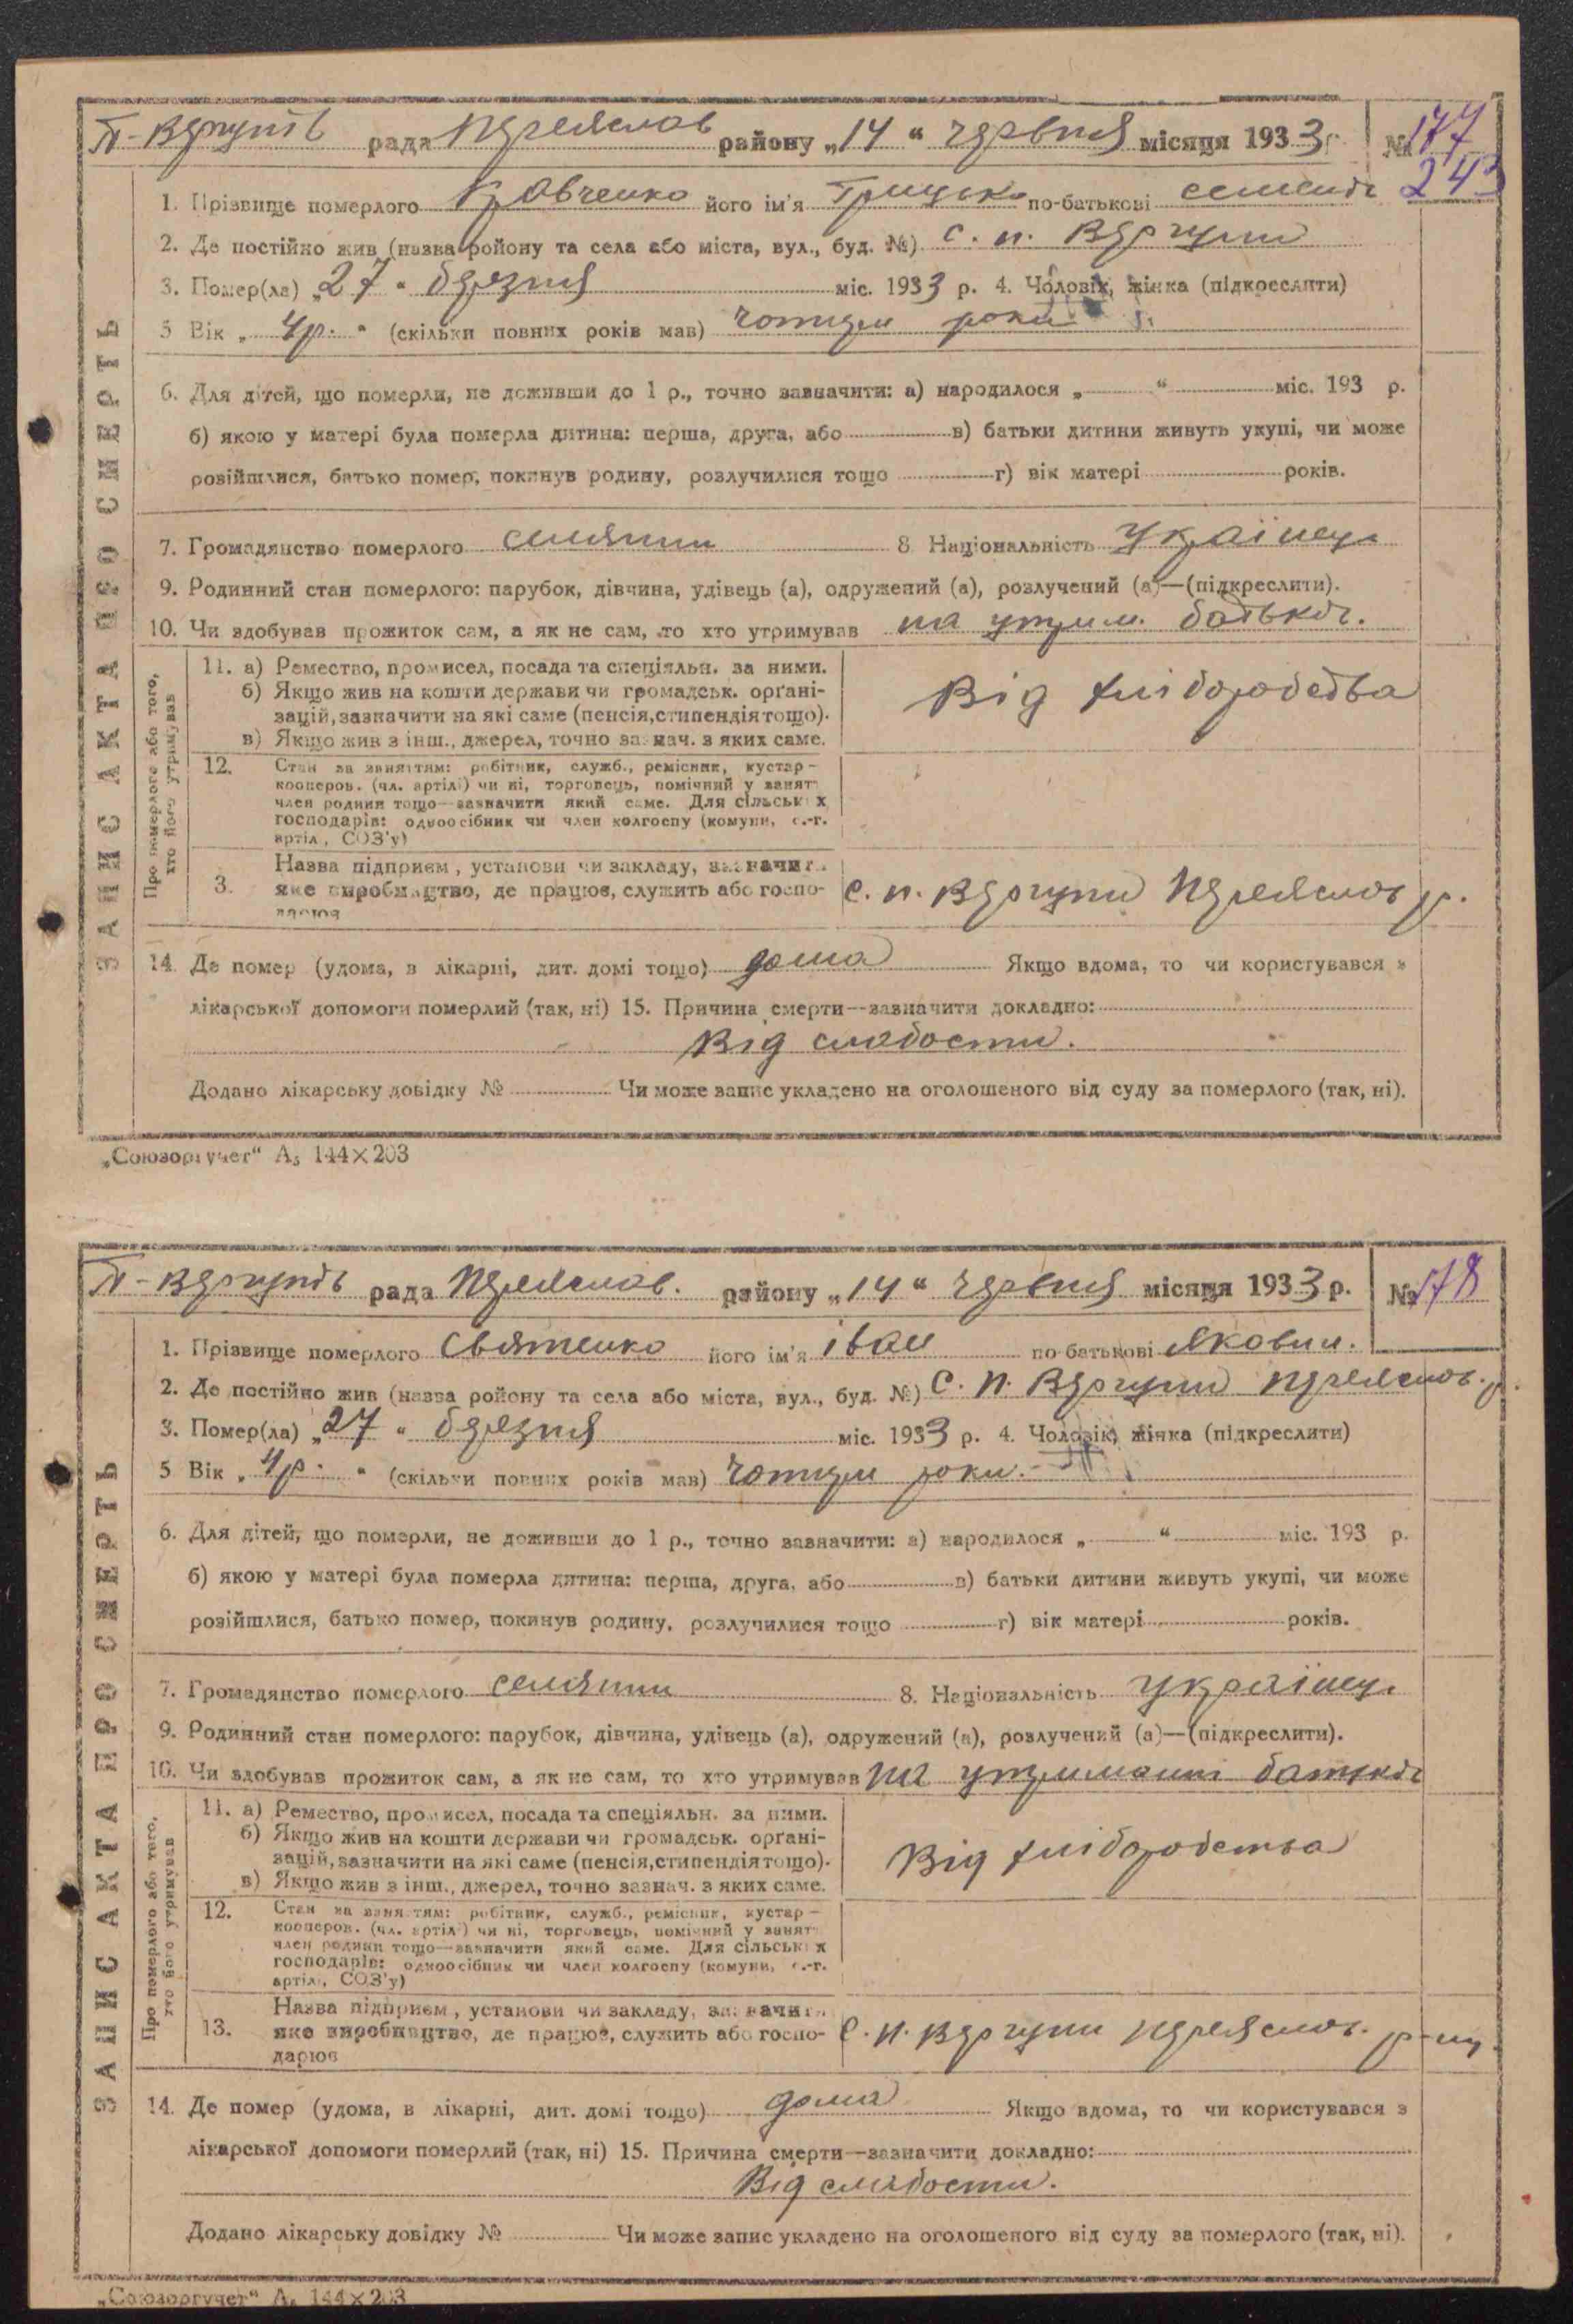 П-Вергунів рада Переяслов району „14“ червня місяця 1933 р. № 177
243
1. Прізвище померлого Кравченко його ім'я Грицько по-батькові семенов
2. Де постійно жив (назва району та села або міста, вул., буд. №) с. п. Вергуни
3. Помер(ла) „27“ березня міс. 1933 р. 4. Чоловік, жінка (підкреслити)
5 Вік „4р.“ (скільки повних років мав) чотири роки
6. Для дітей, що померли, не доживши до 1 р., точно зазначити: а) народилося „ “ міс. 193 р.
б) якою у матері була померла дитина: перша, друга, або в) батьки дитини живуть укупі, чи може
розійшлися, батько помер, покинув родину, розлучилися тощо г) вік матері років.
7. Громадянство померлого селянин 8 Національність Українець
9. Родинний стан померлого: парубок, дівчина, удівець (а), одружений (а), розлучений (а)—(підкреслити).
10. Чи здобував прожиток сам, а як не сам, то хто утримував на утрим. батьків.
ЗАПИС АКТА ПРО СМЕРТЬ
Про померлого або того, хто його утримував
11. а) Ремество, промисел, посада та спеціяльн. за ними.
б) Якщо жив на кошти держави чи громадськ. орґані-
зацій, зазначити на які саме (пенсія, стипендія тощо).
в) Якщо жив з інш., джерел, точно зазнач. з яких саме.
Від хліборобства
12. Стан за заняттям: робітник, служб., ремісник, кустар-
кооперов. (чл. артілі) чи ні, торговець, помічний у занят
член родини тощо—зазначити який саме. Для сільських
господарів: одноосібник чи член колгоспу (комуни, с.-г.
артіл, СОЗ'у)
3. Назва підприєм, установи чи закладу, зазначити
яке виробництво, де працює, служить або госпо-
дарює
с. п. Вергуни Переяслов р.
14. Де помер (удома, в лікарні, дит. домі тощо) дома Якщо вдома, то чи користувався з
лікарської допомоги померлий (так, ні) 15. Причина смерти—зазначити докладно:
Від слабости.
Додано лікарську довідку № Чи може запис укладено на оголошеного від суду за померлого (так, ні).
„Союзоргучет“ А₅ 144×203
П-Вергунів рада Переяслов. району „14“ червня місяця 1933 р. № 178
1. Прізвище померлого Святенко його ім'я іван по-батькові Якович.
2. Де постійно жив (назва району та села або міста, вул., буд. №) с. п. Вергуни переяслов. р.
3. Помер(ла) „27“ березня міс. 1933 р. 4. Чоловік, жінка (підкреслити)
5 Вік „4р.“ (скільки повних років мав) чотири роки.
6. Для дітей, що померли, не доживши до 1 р., точно зазначити: а) народилося „ “ міс. 193 р.
б) якою у матері була померла дитина: перша, друга, або в) батьки дитини живуть укупі, чи може
розійшлися, батько помер, покинув родину, розлучилися тощо г) вік матері років.
7. Громадянство померлого селянин 8. Національність Українець
9. Родинний стан померлого: парубок, дівчина, удівець (а), одружений (а), розлучений (а)—(підкреслити).
10. Чи здобував прожиток сам, а як не сам, то хто утримував на утриманні батьків
ЗАПИС АКТА ПРО СМЕРТЬ
Про померлого або того, хто його утримував
11. а) Ремество, промисел, посада та спеціяльн. за ними.
б) Якщо жив на кошти держави чи громадськ. орґані-
зацій, зазначити на які саме (пенсія, стипендія тощо).
в) Якщо жив з інш., джерел, точно зазнач. з яких саме.
Від хліборобства
12. Стан за заняттям: робітник, служб., ремісник, кустар-
кооперов. (чл. артілі) чи ні, торговець, помічний у занят
член родини тощо—зазначити який саме. Для сільських
господарів: одноосібник чи член колгоспу (комуни, с.-г.
артіл, СОЗ'у)
13. Назва підприєм, установи чи закладу, зазначити
яке виробництво, де працює, служить або госпо-
дарює
с. п. Вергуни переяслов. р-ну.
14. Де помер (удома, в лікарні, дит. домі тощо) дома Якщо вдома, то чи користувався з
лікарської допомоги померлий (так, ні) 15. Причина смерти—зазначити докладно:
Від слабости.
Додано лікарську довідку № Чи може запис укладено на оголошеного від суду за померлого (так, ні).
„Союзоргучет“ А₅ 144×203